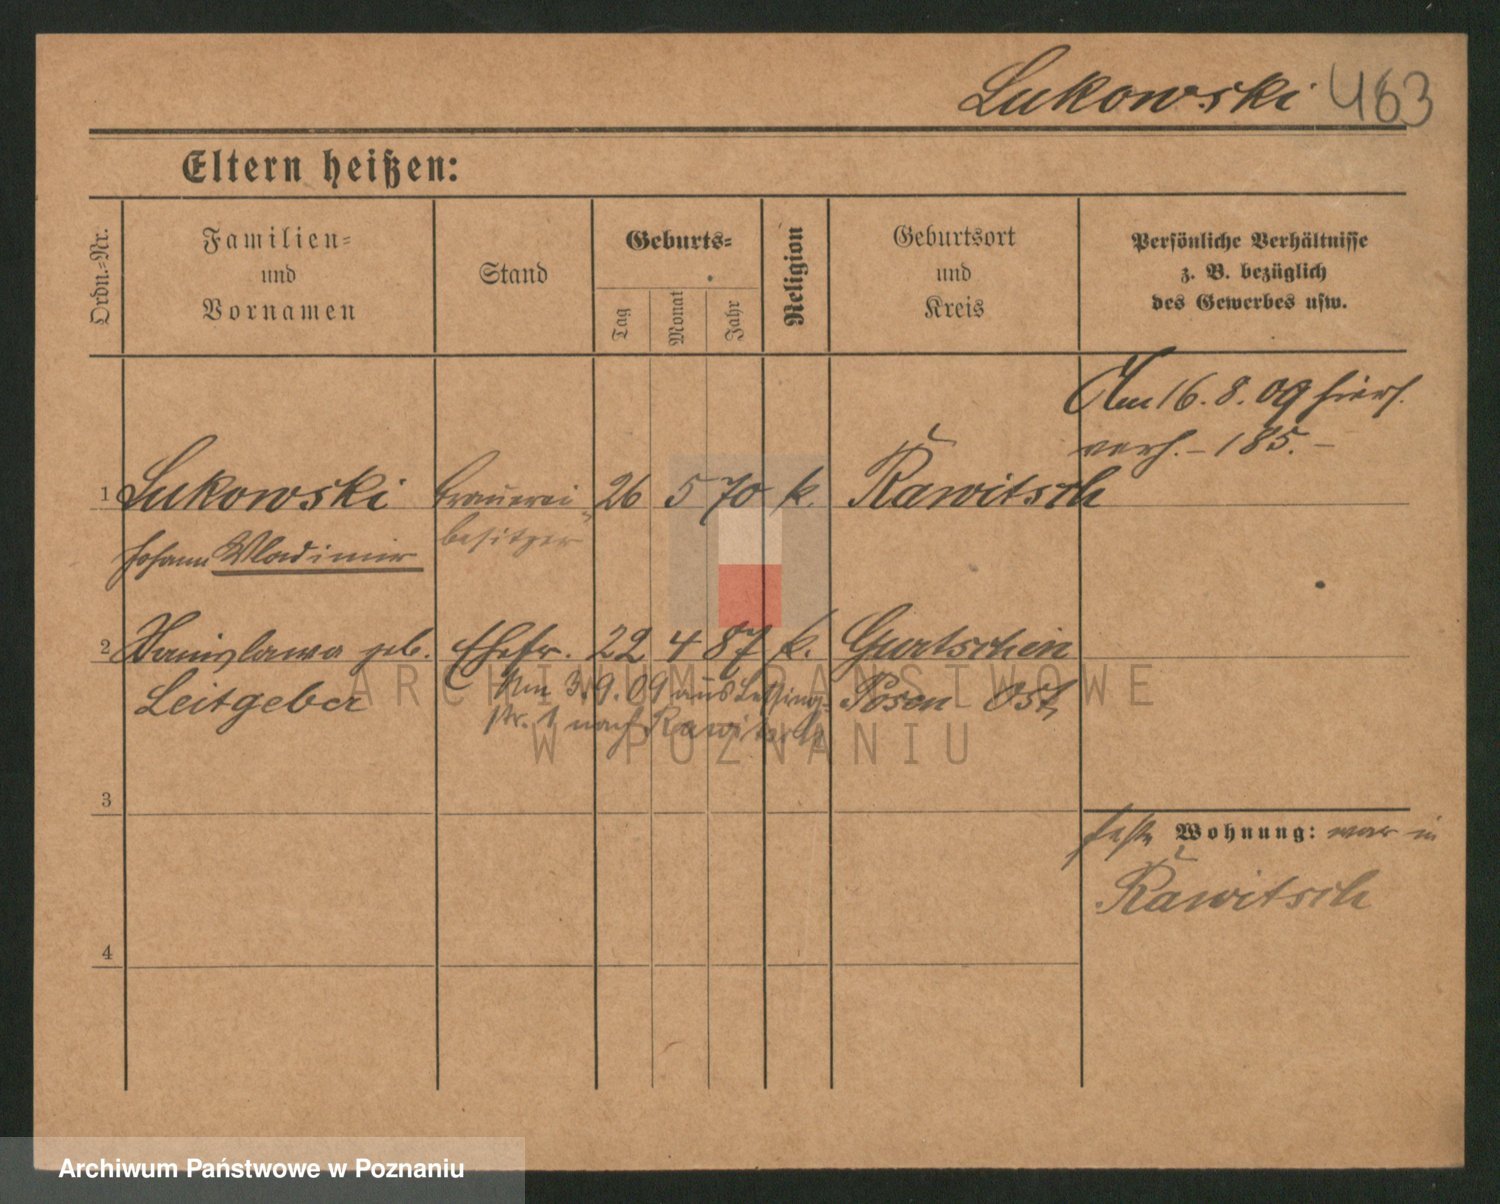 Lukowski 463
Eltern heißen:
Ordn.=Nr.
Familien=
und
Vornamen
Stand
Geburts=
Tag
Monat
Jahr
Religion
Geburtsort
und
Kreis
Persönliche Verhältnisse
z. B. bezüglich
des Gewerbes usw.
Am 16. 8. 09 hiers.
verh. – 185. –
1 Lukowski Brauerei= 26 5 70 k. Rawitsch
besitzer
Johann Wladimir
2 Stanislawa geb. Ehefr. 22 4 87 k. Gurtschin
Leitgeber Am 3.9.09 aus Lessing= Posen Ost
str. 1 nach Rawitsch
3
feste Wohnung: war in
Rawitsch
4
ARCHIWUM PAŃSTWOWE
W POZNANIU
Archiwum Państwowe w Poznaniu